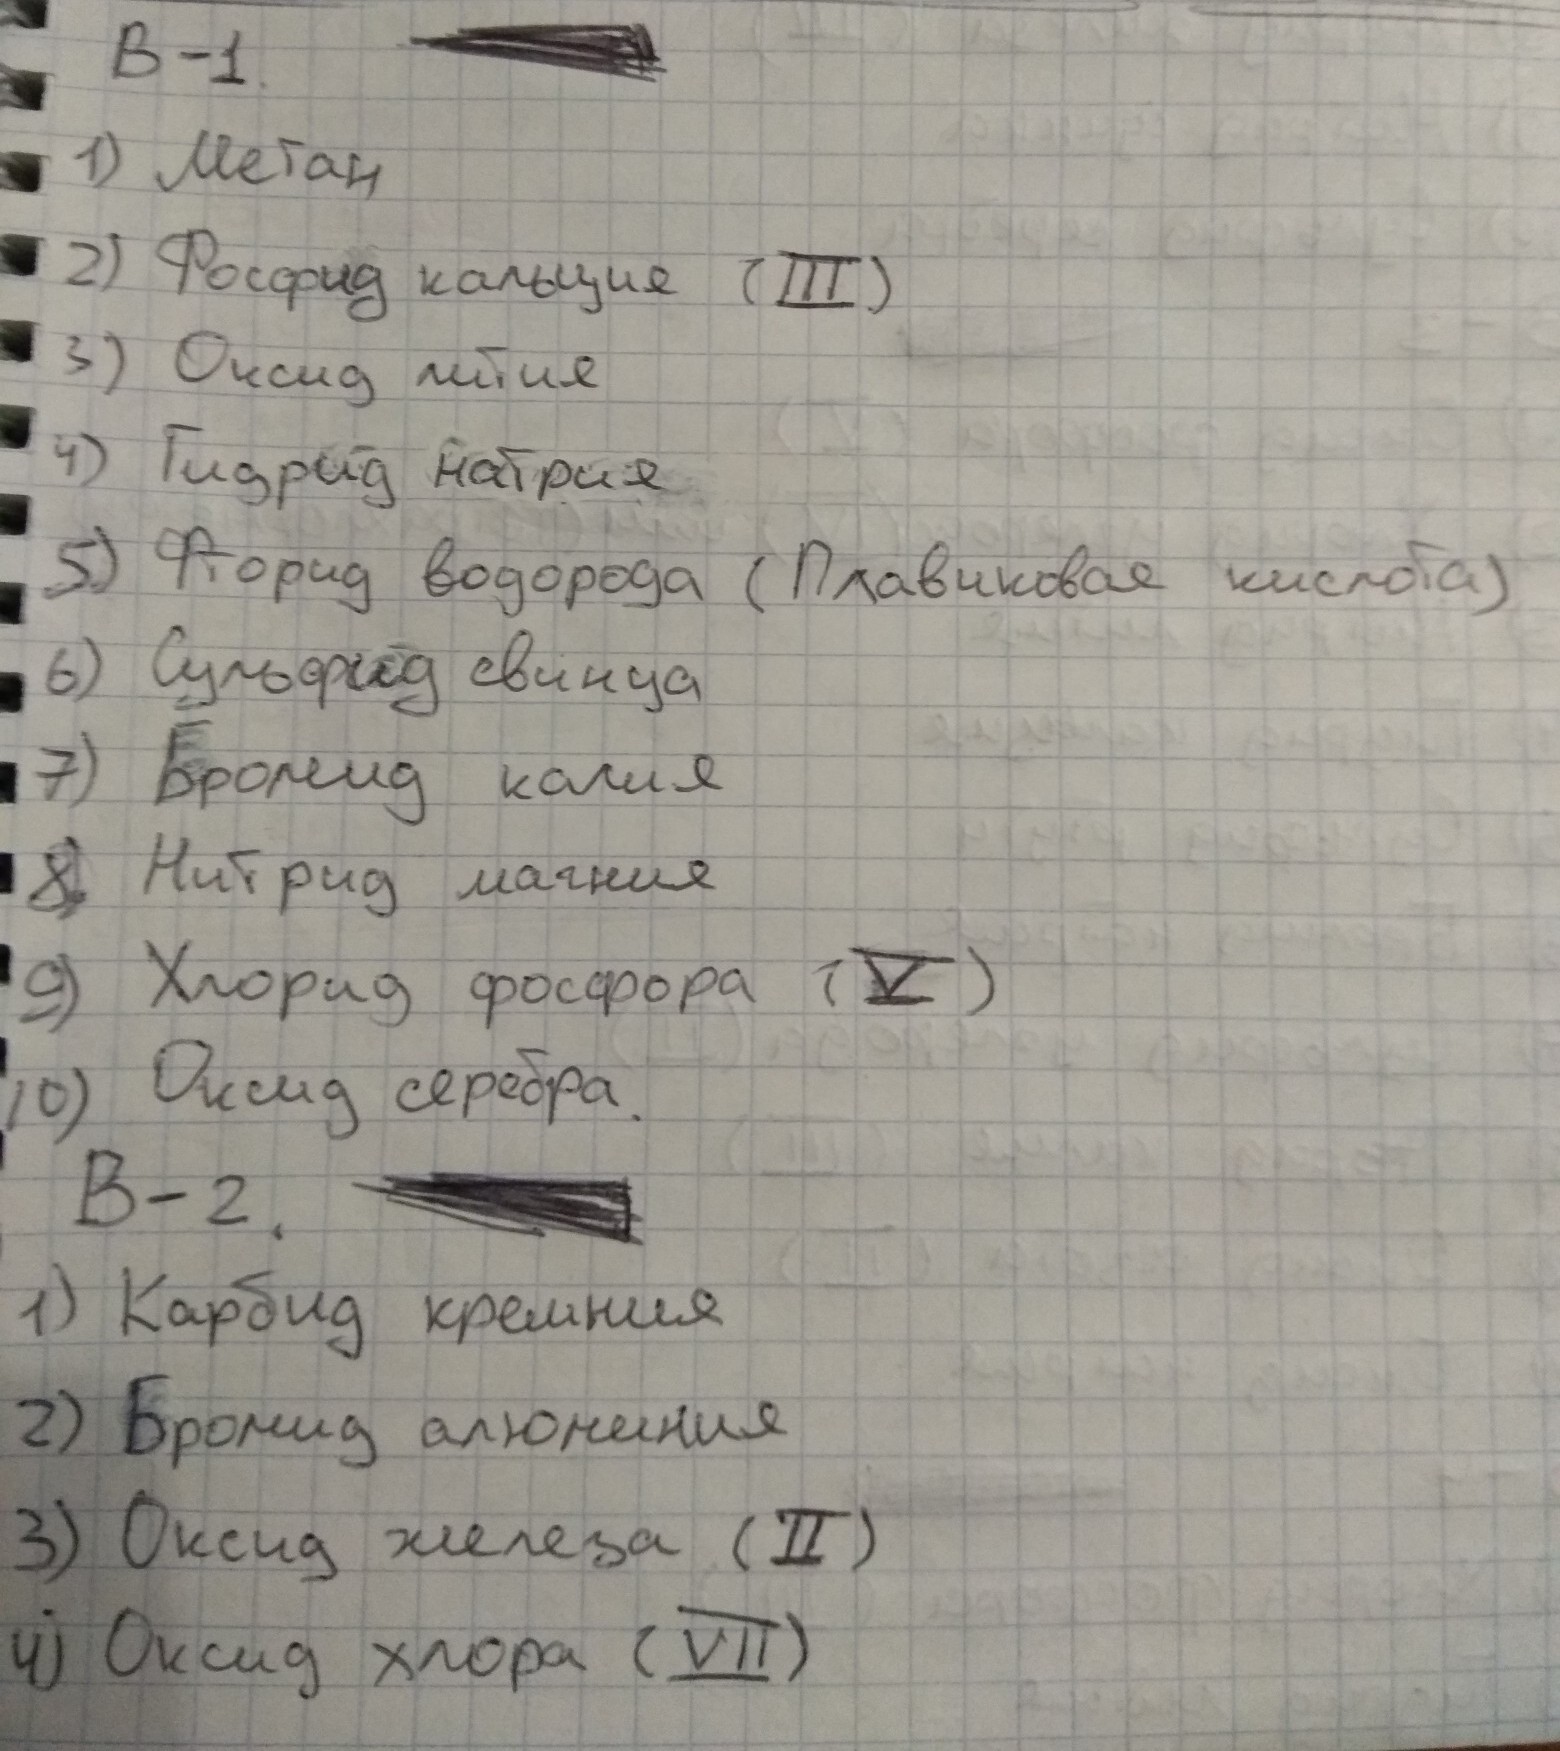 В-1.
1) Метан
2) Фосфид кальция (III)
3) Оксид лития
4) Гидрид натрия
5) Фторид водорода (Плавиковая кислота)
6) Сульфид свинца
7) Бромид калия
8) Нитрид магния
9) Хлорид фосфора (V)
10) Оксид серебра.
В-2.
1) Карбид кремния
2) Бромид алюминия
3) Оксид железа (II)
4) Оксид хлора (VII)